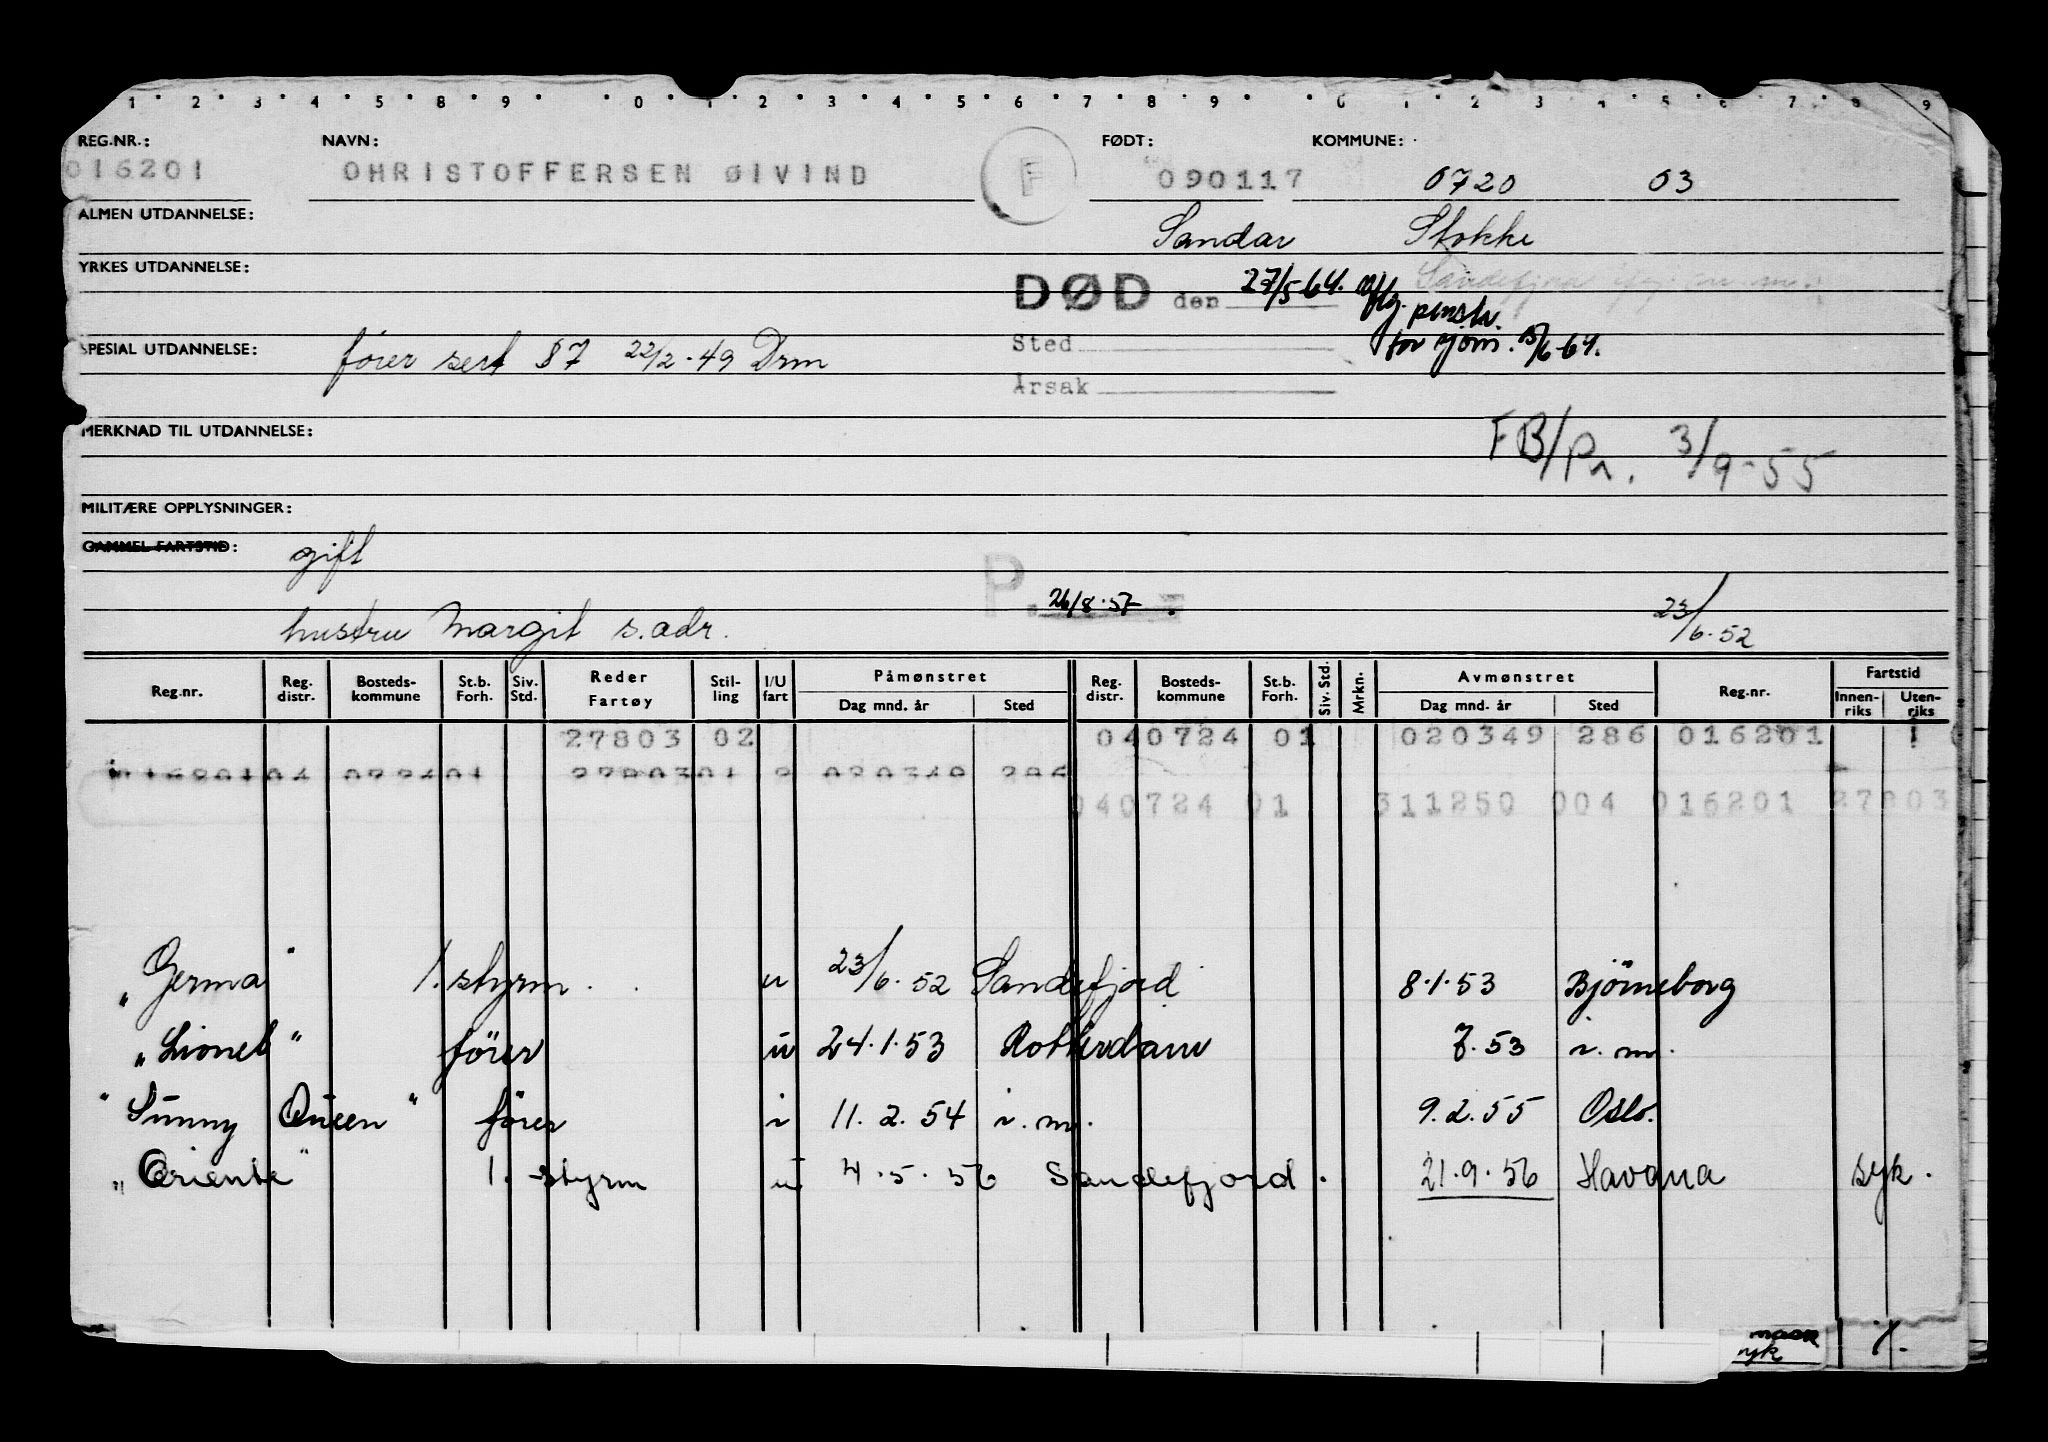 1 2 3 4 5 8 9 0 1 2 3 4 5 6 7 8 9 0 1 2 3 4 5 6 7 8 9
REG.NR.: NAVN: FØDT: KOMMUNE:
016201 OHRISTOFFERSEN ØIVIND F 090117 0720 03
ALMEN UTDANNELSE: Sandar Stokke
YRKES UTDANNELSE: DØD den 27/5-64. iflg. penstr.
SPESIAL UTDANNELSE: fører sert §7 22/2-49 Drm Sted for sjøm. 15/6-64.
Årsak
MERKNAD TIL UTDANNELSE: FB/Pn. 3/9-55
MILITÆRE OPPLYSNINGER:
GAMMEL FARTSTID: gift
P. 26/8.57
hustru Margit s. adr. 23/6.52
Reg.nr. Reg. distr. Bosteds-kommune St.b. Forh. Siv. Std. Reder Fartøy Stil-ling I/U fart Påmønstret Dag mnd. år Sted Reg. distr. Bosteds-kommune St.b. Forh. Siv. Std. Mrkn. Avmønstret Dag mnd. år Sted Reg.nr. Fartstid Innen-riks Uten-riks
27803 02 040724 01 020349 286 016201 1
040724 01 311250 004 016201 27803
„Germa" 1. styrm. u 23/6.52 Sandefjord 8.1.53 Bjørneborg
„Lionel" fører u 24.1.53 Rotterdam 7.53 i.m.
"Sunny Queen" fører i 11.2.54 i.m. 9.2.55 Oslo.
„Oriente" 1. styrm u 4.5.56 Sandefjord. 21.9.56 Havana syk.
syk 1.